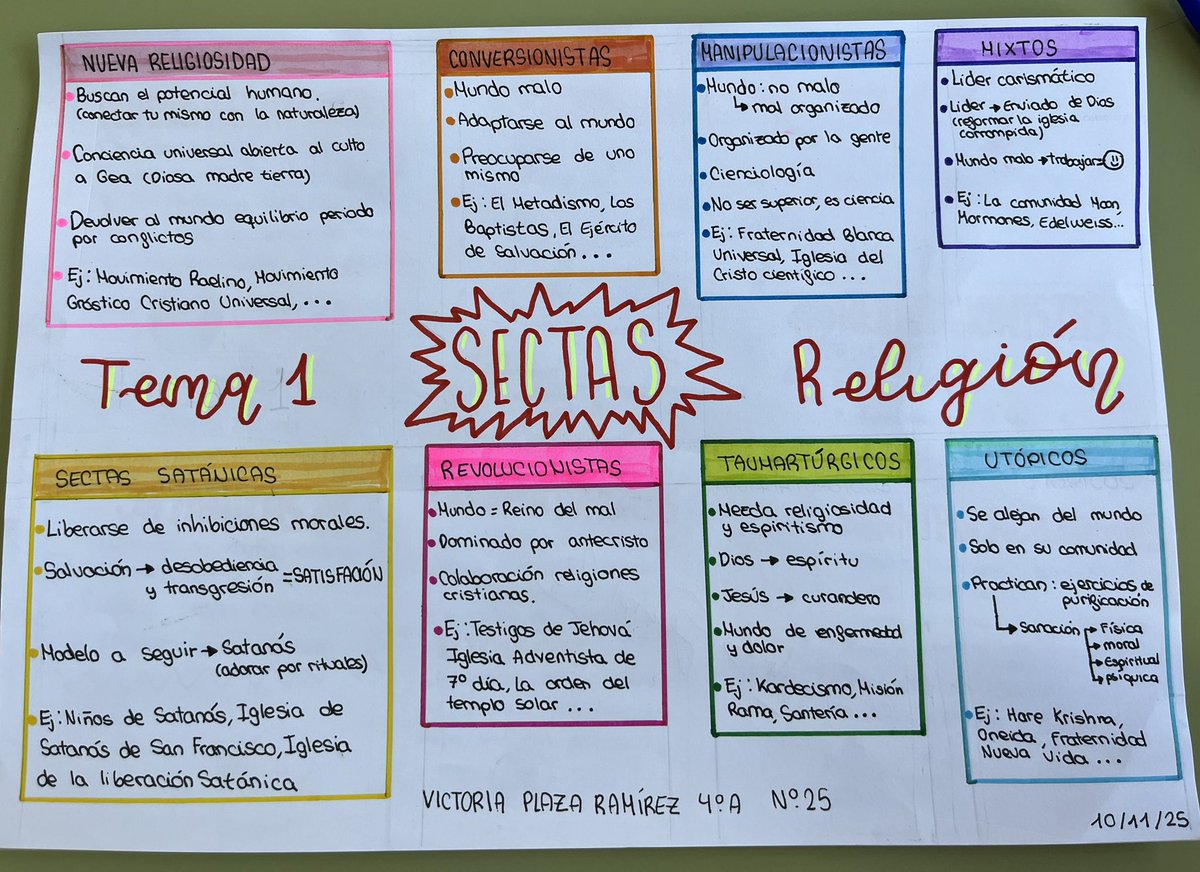 NUEVA RELIGIOSIDAD
Buscan el potencial humano.
(conectar tu mismo con la naturaleza)
Conciencia universal abierta al culto
a Gea (Diosa madre tierra)
Devolver al mundo equilibrio periodo
por conflictos
Ej: Movimiento Raelino, Movimiento
Gnóstico Cristiano Universal, ...
CONVERSIONISTAS
Mundo malo
Adaptarse al mundo
Preocuparse de uno
mismo
Ej: El Metadismo, Los
Baptistas, El Ejército
de Salvación ...
MANIPULACIONISTAS
Mundo: no malo
↳ mal organizado
Organizado por la gente
Cienciología
No ser superior, es ciencia
Ej: Fraternidad Blanca
Universal, Iglesia del
Cristo científico ...
MIXTOS
Lider carismático
Lider → Enviado de Dios
(reformar la iglesia
corrompida)
Mundo malo → trabajar=☺
Ej: La comunidad Moon,
Mormones, Edelweiss...
Tema 1
SECTAS
Religión
SECTAS SATÁNICAS
Liberarse de inhibiciones morales.
Salvación → desobediencia
y transgresión =SATISFACIÓN
Modelo a seguir → Satanás
(adorar por rituales)
Ej: Niños de Satanás, Iglesia de
Satanás de San Francisco, Iglesia
de la liberación Satánica
REVOLUCIONISTAS
Mundo = Reino del mal
Dominado por antecristo
Colaboración religiones
cristianas.
Ej: Testigos de Jehová
Iglesia Adventista de
7º día, La orden del
templo solar ...
TAUMARTÚRGICOS
Mezcla religiosidad
y espiritismo
Dios → espíritu
Jesús → curandero
Mundo de enfermedad
y dolor
Ej: Kardecismo, Misión
Rama, Santería ...
UTÓPICOS
Se alejan del mundo
Solo en su comunidad
Practican: ejercicios de
purificación
↳ Sanación → Física
→ moral
→ espiritual
→ psíquica
Ej: Hare Krishna,
Oneida, Fraternidad
Nueva Vida ...
VICTORIA PLAZA RAMÍREZ 4ºA Nº25
10/11/25